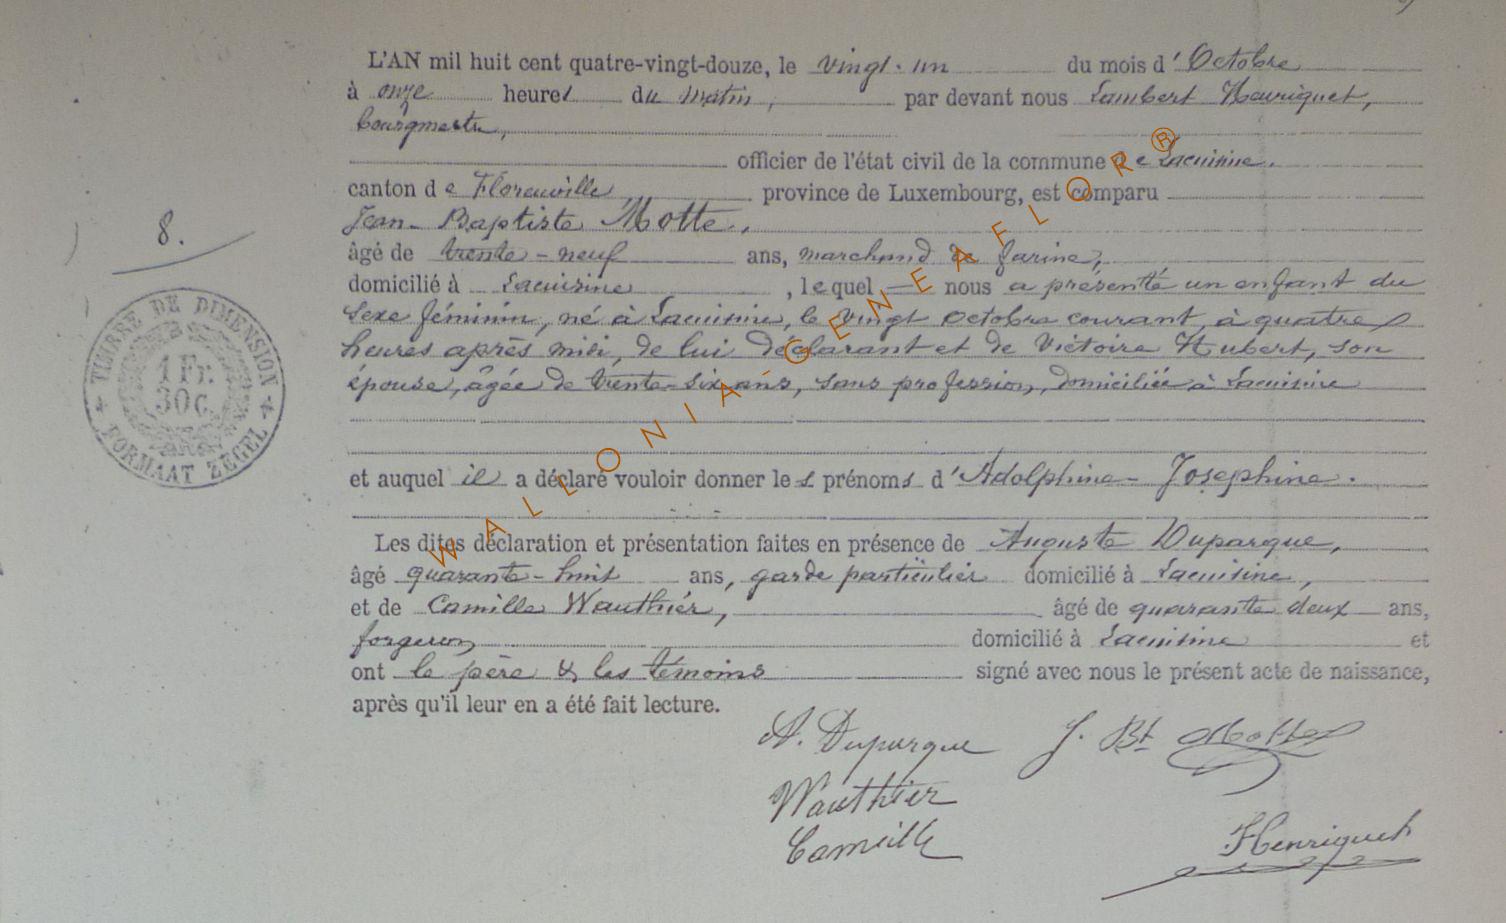 L'AN mil huit cent quatre-vingt-douze, le vingt-un du mois d'Octobre
à onze heures du matin, par devant nous Lambert Henriquet,
bourgmestre,
officier de l'état civil de la commune de Lacuisine.
canton de Florenville, province de Luxembourg, est comparu
Jean-Baptiste Motte,
âgé de trente-neuf ans, marchand de farine,
domicilié à Lacuisine, lequel nous a présenté un enfant du
sexe féminin, né à Lacuisine, le vingt octobre courant, à quatre
heures après midi, de lui déclarant et de Victoire Hubert, son
épouse, âgée de trente-six ans, sans profession, domiciliée à Lacuisine
et auquel il a déclaré vouloir donner les prénoms d'Adolphine-Josephine.
Les dites déclaration et présentation faites en présence de Auguste Duparque,
âgé quarante-huit ans, garde particulier domicilié à Lacuisine,
et de Camille Wauthier, âgé de quarante deux ans,
forgeron domicilié à Lacuisine et
ont le père & les témoins signé avec nous le présent acte de naissance,
après qu'il leur en a été fait lecture.
8.
TIMBRE DE DIMENSION
1 Fr.
30 C.
FORMAAT ZEGEL
A. Duparque J. Bt Motte
Wauthier
Camille
Henriquet
WALLONIA-GENEAFLOR®